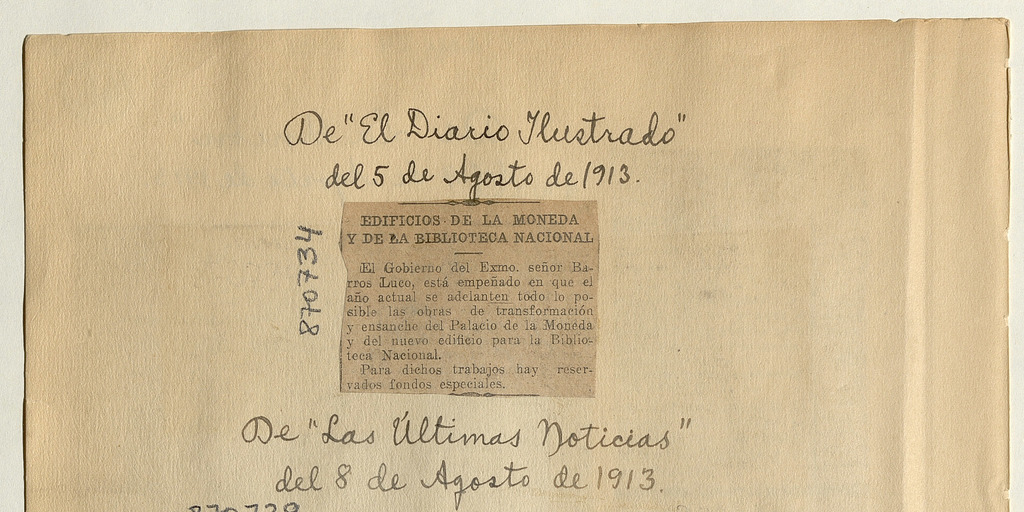 De "El Diario Ilustrado"
del 5 de Agosto de 1913.
870734
EDIFICIOS DE LA MONEDA
Y DE LA BIBLIOTECA NACIONAL
El Gobierno del Exmo. señor Ba-
rros Luco, está empeñado en que el
año actual se adelanten todo lo po-
sible las obras de transformación
y ensanche del Palacio de la Moneda
y del nuevo edificio para la Biblio-
teca Nacional.
Para dichos trabajos hay reser-
vados fondos especiales.
De "Las Últimas Noticias"
del 8 de Agosto de 1913.